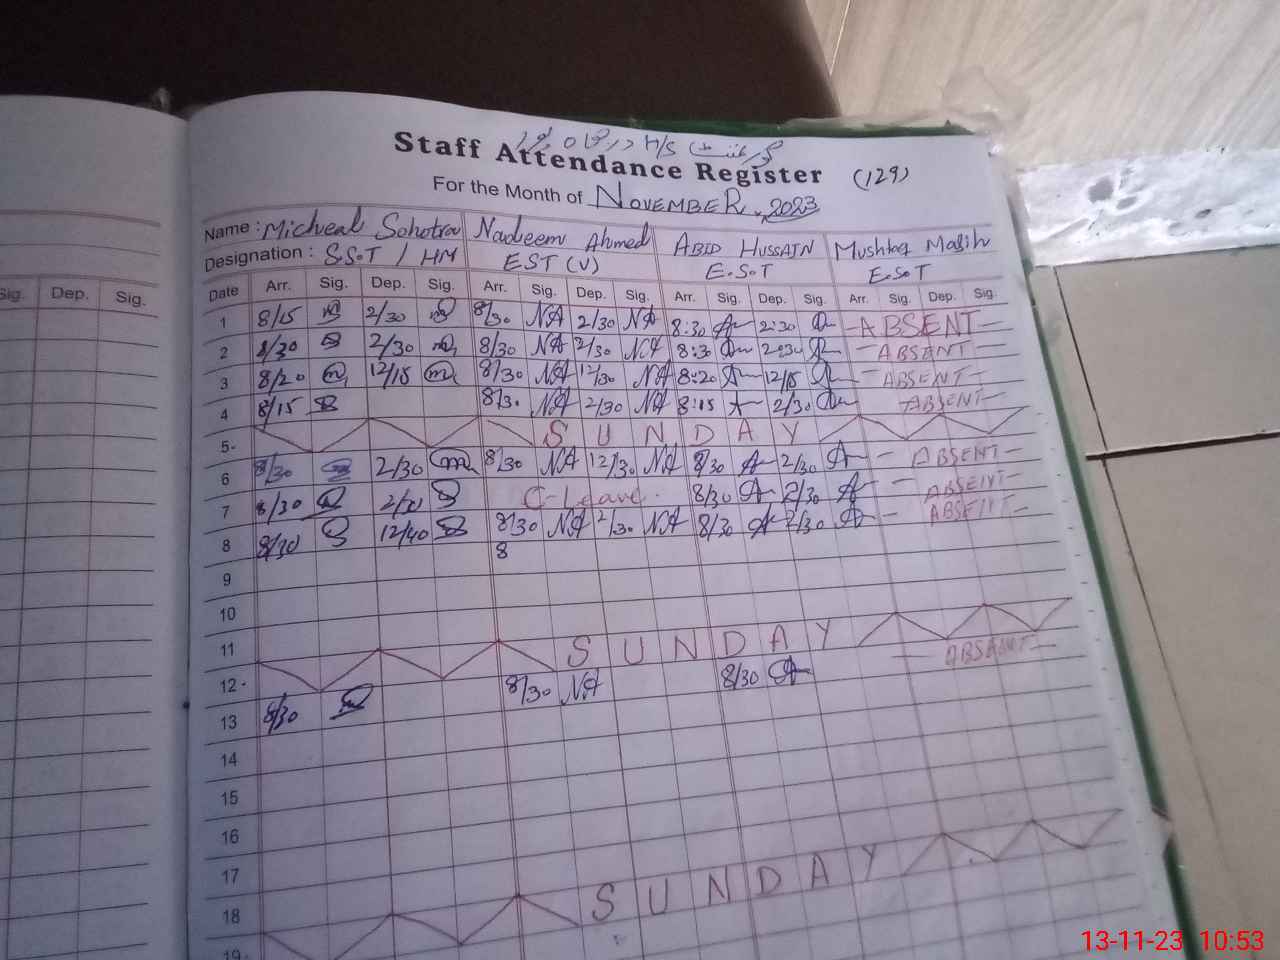 گورنمنٹ H/S
Staff Attendance Register (129)
For the Month of NOVEMBER, 2023
Name: Micheal Sohotra Nadeem Ahmed ABID HUSSAIN Mushtaq Masih
Designation: S.S.T / HM EST (V) E.S.T E.S.T
Sig. Dep. Sig.
Date Arr. Sig. Dep. Sig. Arr. Sig. Dep. Sig. Arr. Sig. Dep. Sig. Arr. Sig. Dep. Sig.
1 8/15 2/30 8/30 NA 2/30 NA 8:30 2:30 ABSENT
2 8/30 2/30 8/30 NA 2/30 NA 8:30 2:30 ABSANT
3 8/20 12/15 8/30 NA 12/30 NA 8:20 12/15 ABSENT
4 8/15 8/30 NA 2/30 NA 8:15 2/30 ABSENT
5 SUNDAY
6 8/30 2/30 8/30 NA 12/30 NA 8/30 2/30 ABSENT
7 8/30 2/30 C-Leave 8/30 2/30 ABSENT
8 8/30 12/40 8/30 NA 2/30 NA 8/30 2/30 ABSENT
9 8
10
11
12 SUNDAY
13 8/30 8/30 NA 8/30 ABSANT
14
15
16
17
18
19 SUNDAY
13-11-23 10:53